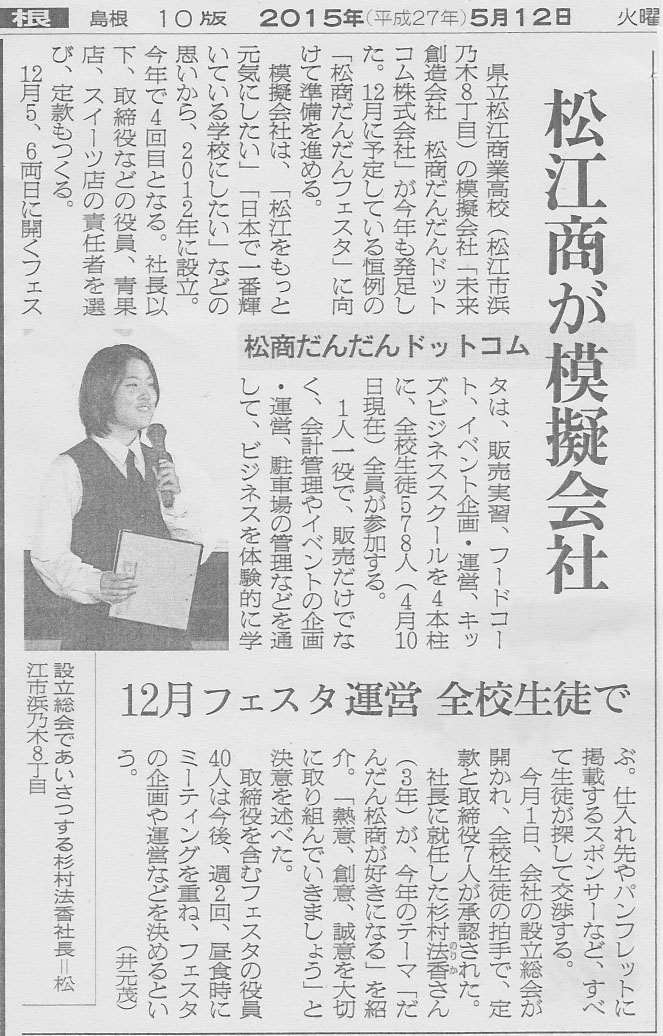 根 島根 10版 2015年(平成27年)5月12日 火曜
松江商が模擬会社
県立松江商業高校(松江市浜
乃木8丁目)の模擬会社「未来
創造会社 松商だんだんドット
コム株式会社」が今年も発足し
た。12月に予定している恒例の
「松商だんだんフェスタ」に向
けて準備を進める。
模擬会社は、「松江をもっと
元気にしたい」「日本で一番輝
いている学校にしたい」などの
思いから、2012年に設立。
今年で4回目となる。社長以
下、取締役などの役員、青果
店、スイーツ店の責任者を選
び、定款もつくる。
12月5、6両日に開くフェス
松商だんだんドットコム
タは、販売実習、フードコー
ト、イベント企画・運営、キッ
ズビジネススクールを4本柱
に、全校生徒578人(4月10
日現在)全員が参加する。
1人一役で、販売だけでな
く、会計管理やイベントの企画
・運営、駐車場の管理などを通
して、ビジネスを体験的に学
12月フェスタ運営 全校生徒で
ぶ。仕入れ先やパンフレットに
掲載するスポンサーなど、すべ
て生徒が探して交渉する。
今月1日、会社の設立総会が
開かれ、全校生徒の拍手で、定
款と取締役7人が承認された。
社長に就任した杉村法香さん
のりか
(3年)が、今年のテーマ「だ
んだん松商が好きになる」を紹
介。「熱意、創意、誠意を大切
に取り組んでいきましょう」と
決意を述べた。
取締役を含むフェスタの役員
40人は今後、週2回、昼食時に
ミーティングを重ね、フェスタ
の企画や運営などを決めるとい
う。
(井元茂)
設立総会であいさつする杉村法香社長=松
江市浜乃木8丁目